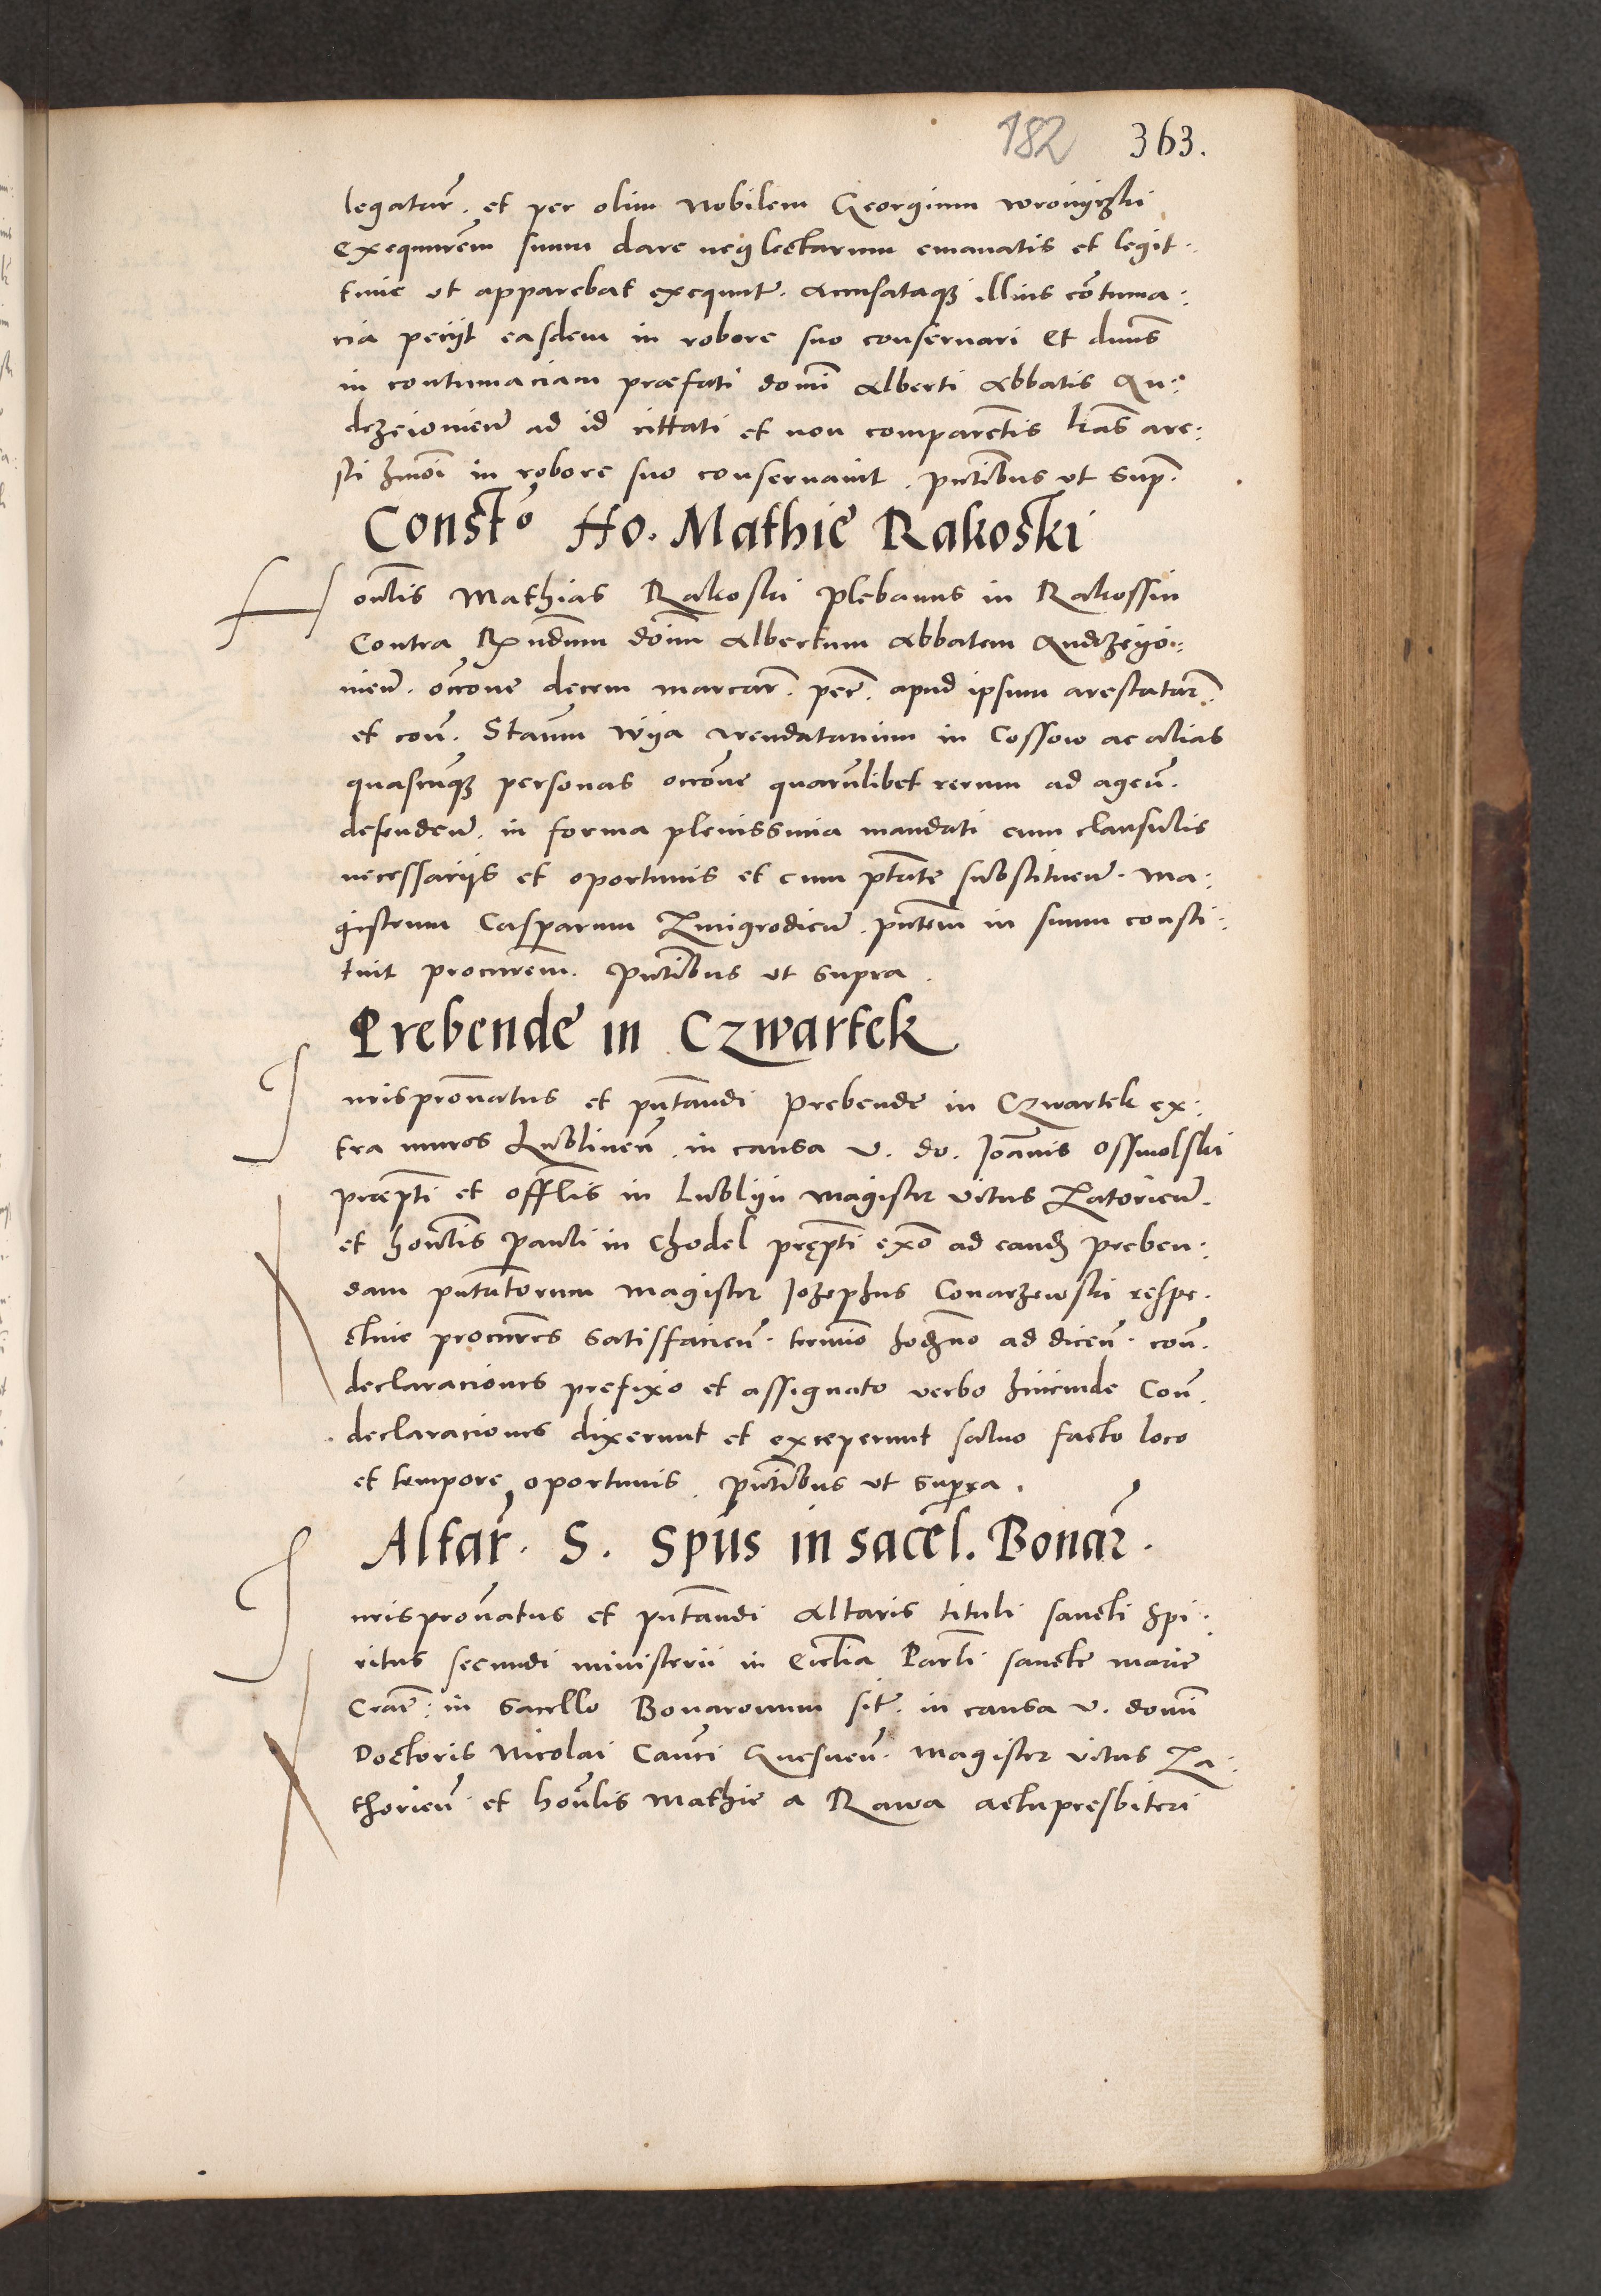 182 363.
legatar̃. et per olim Nobilem Georgium
exequurẽm suum dare neglectarum emanatis et legit
time ut apparebat exequut̃. Accusataqʒ illius cõtuma:
cia peciit easdem in robore suo conseruari Et dnus
in contumaciam præfati domĩ Alberti Abbatis An:
dzeiouien̄ ad id cittati et non comparẽtis lr̃as are:
sti hmõi in robore suo conseruauit. pñtibus ut sup̃.
Constᵒ Ho. Mathie Rakoski
Honlis Mathias Rakoski plebanus in Rakossin
Contra Rx̃ndum dõim Albertum Abbatem Andzeyo:
uien̄. occõne decem marcar̃. pec̃. apud ipsum arestatar̃.
et coñ. Staũm Wya Arendatarium in Cossow ac alias
quascũqʒ personas occõne quarũlibet rerum ad ageñ.
defendeñ. in forma plenissima mandati cum clausulis
necessariis et oportunis et cum ptãte substituen̄. Ma:
gistrum Casparum Zmigrodien̄. pñtem in suum consti:
tuit procurẽm. Pñtibus ut supra.
Prebende in Czwartek
Iurispronãtus et pñtandi Prebende in Czwartek ex:
tra muros Lublinen̄. in causa V. do. Joãnis Ossmolski
præpti et offlis in Lublyn Magister Vitus Zatorien̄.
et honlis Pauli in Chodel prępti exõ ad eandʒ preben:
dam pñtatorum Magister Jozephus Conarzewski respe.
ctiue procurẽs satisfacieñ. termĩo hodʒno ad diceñ. coñ.
declaraciones prefixo et assignato verbo hincinde Coñ.
declaraciones dixerunt et exceperunt saluo facto loco
et tempore oportunis. pñtibus ut supra.
Altar̃. S. Spũs in sacel. Bonar̃.
Iurispronãtus et pñtandi Altaris tituli sancti Spi:
ritus secundi ministerii in Ecclia Parli sancte Marie
Craĉ. in sacello Bonaronum sit̃. in causa V. domĩ
Doctoris Nicolai Canci Gnesneñ. Magister Vitus Za:
thorien̄ et honlis Mathie a Rawa actu presbiteri